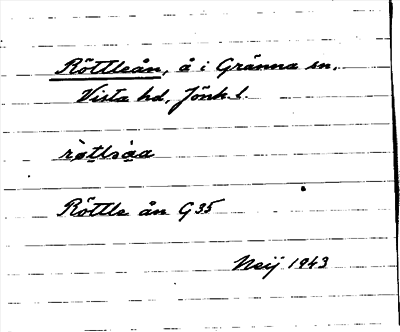 Röttleån, å i Gränna sn.
Vista hd, Jönk l.
rötlsåa
Röttle ån G35
Neij 1943